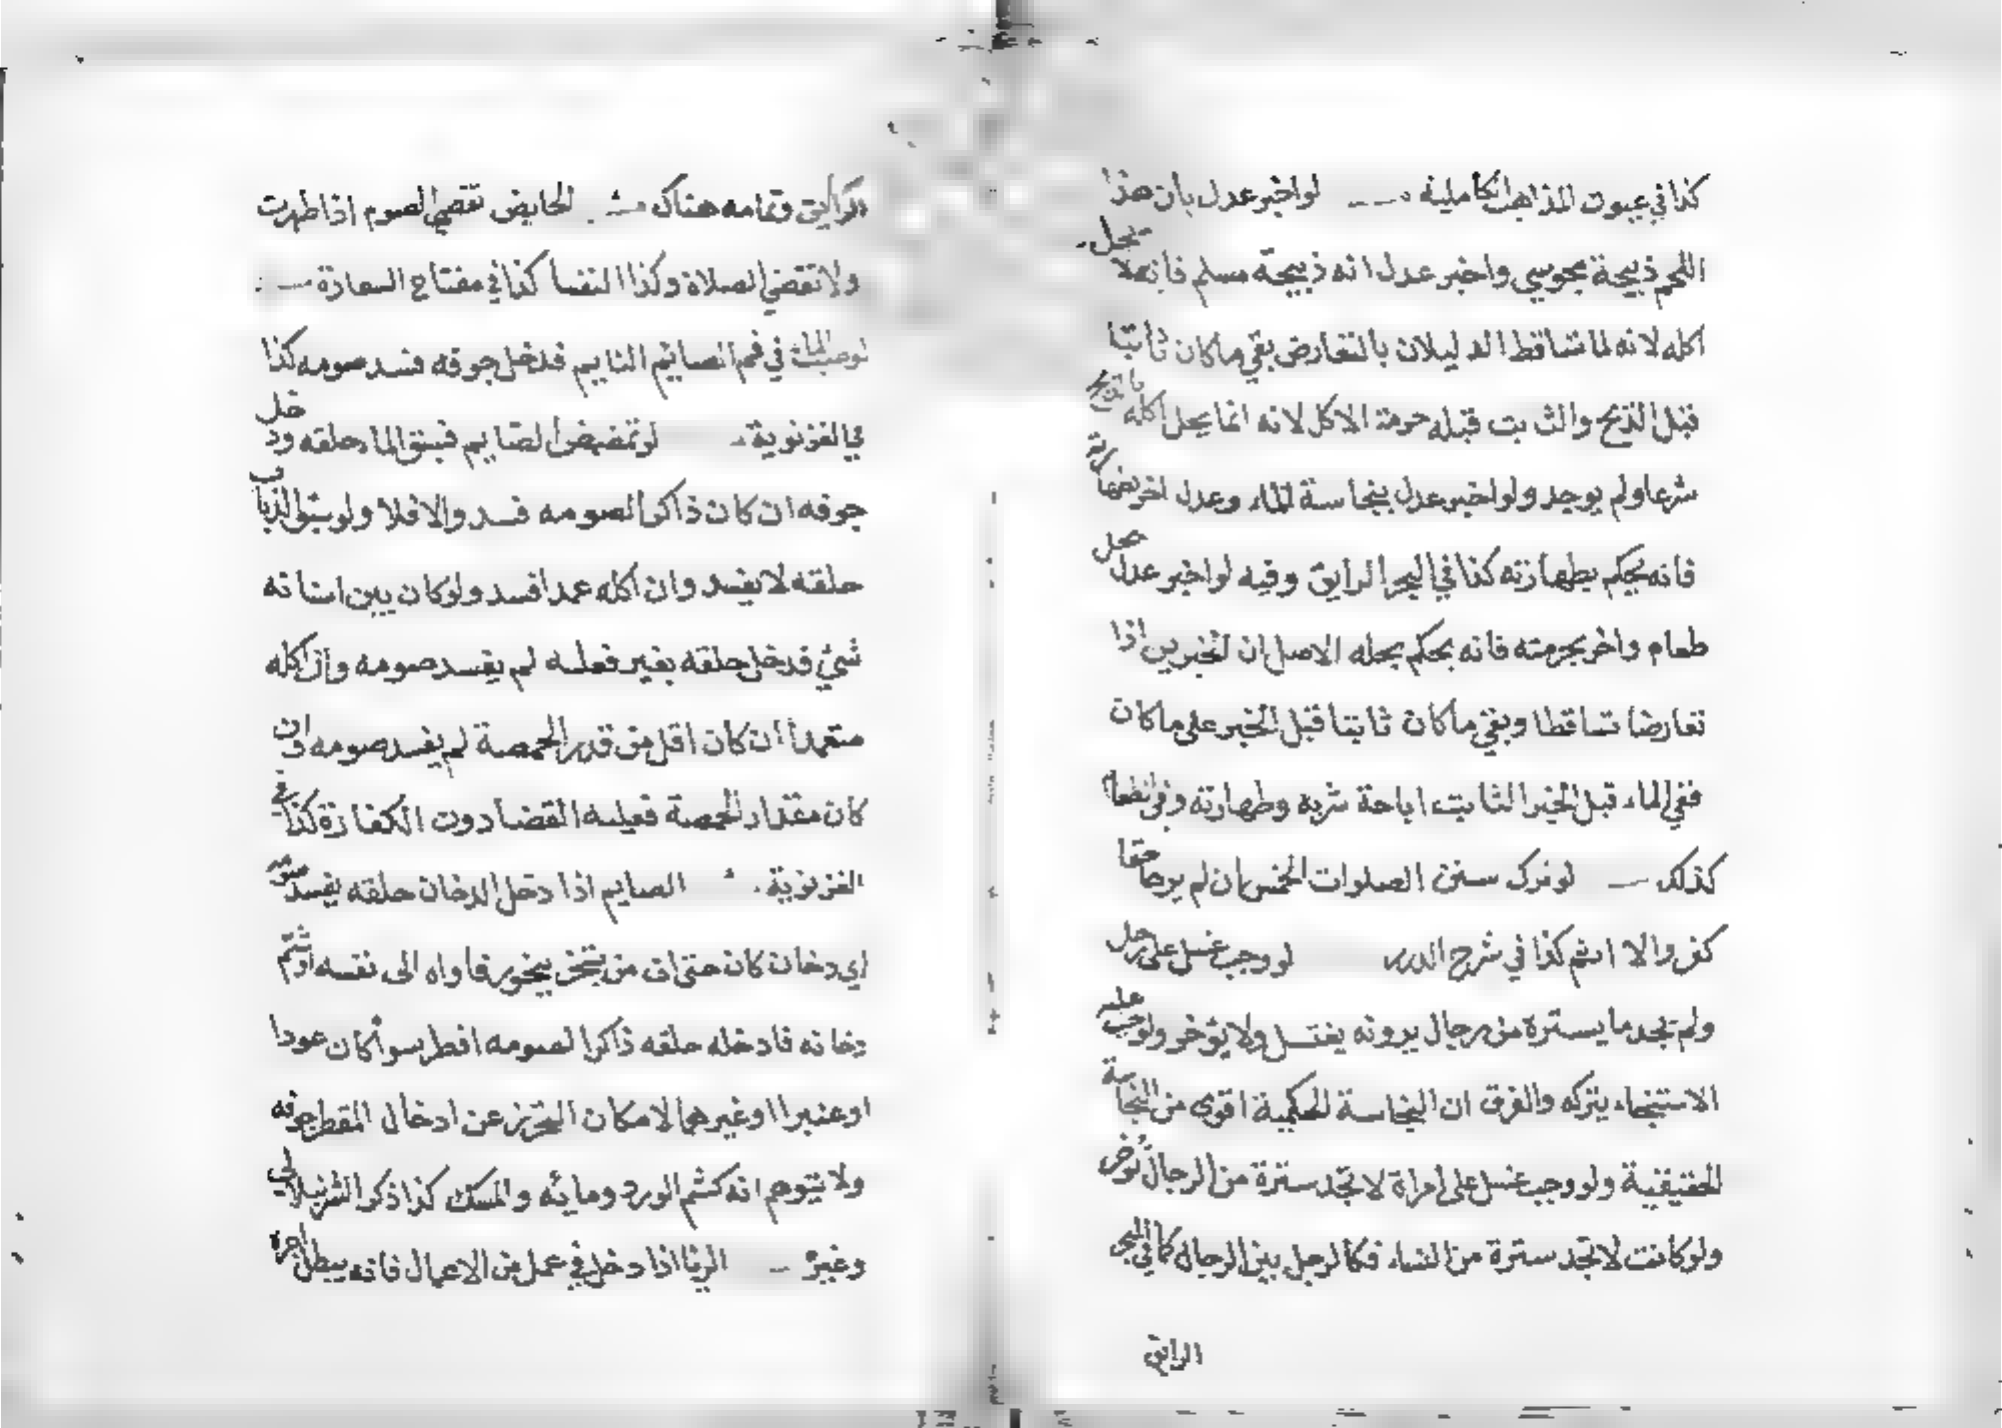 كذا في عيون المذاهب الكاملية لو اخبر عدل بان هذا
اللحم ذبيحة مجوسي واخبر عدل انه ذبيحة مسلم فانه لا يحل
اكله لانه لما تساقط الدليلان بالتعارض بقي ما كان ثابتا
قبل الذبح والثابت قبله حرمة الاكل لانه انما يحل اكله بالذبح
شرعا ولم يوجد ولو اخبر عدل بنجاسة الماء وعدل اخر بطهارته
فانه يحكم بطهارته كذا في البحر الرايق وفيه لو اخبر عدل بحل
طعام واخر بحرمته فانه يحكم بحله الاصل ان الخبرين اذا
تعارضا تساقطا وبقي ما كان ثابتا قبل الخبر على ما كان
ففي الماء قبل الخبر الثابت اباحة شربه وطهارته وفي الطعام
كذلك لو ترك سنن الصلوات الخمس ان لم يرها حقا
كفر والا اثم كذا في شرح الدرر لو وجب غسل على رجل
ولم يجد ما يستره من رجال يرونه يغتسل ولا يؤخر ولو وجب عليه
الاستنجاء يتركه والفرق ان النجاسة الحكمية اقوى من النجاسة
الحقيقية ولو وجب غسل على امراة لا تجد سترة من الرجال تؤخر
ولو كانت لا تجد سترة من النساء فكالرجل بين الرجال كما في البحر
الرايق
الرايق وتمامه هناك الحايض تقضي الصوم اذا طهرت
ولا تقضي الصلاة وكذا النفسا كذا في مفتاح السعادة
لو صب الماء في فم الصايم النايم فدخل جوفه فسد صومه كذا
في الغزنوية لو تمضمض الصايم فسبق الماء حلقه ودخل
جوفه ان كان ذاكرا لصومه فسد والا فلا ولو سبق الذباب
حلقه لا يفسد وان اكله عمدا فسد ولو كان بين اسنانه
شيء فدخل حلقه بغير فعله لم يفسد صومه وان اكله
متعمدا ان كان اقل من قدر الحمصة لم يفسد صومه وان
كان مقدار الحمصة فعليه القضا دون الكفارة كذا في
الغزنوية الصايم اذا دخل الدخان حلقه يفسد صومه
اي دخان كان حتى ان من تبخر ببخور فاواه الى نفسه واشتم
دخانه فادخله حلقه ذاكرا لصومه افطر سوا كان عودا
او عنبرا او غيرهما لامكان التحرز عن ادخال المفطر جوفه
ولا يتوهم انه كشم الورد ومايه والمسك كذا ذكر الشرنبلالي
وغيره الريا اذا دخل في عمل من الاعمال فانه يبطل اجره